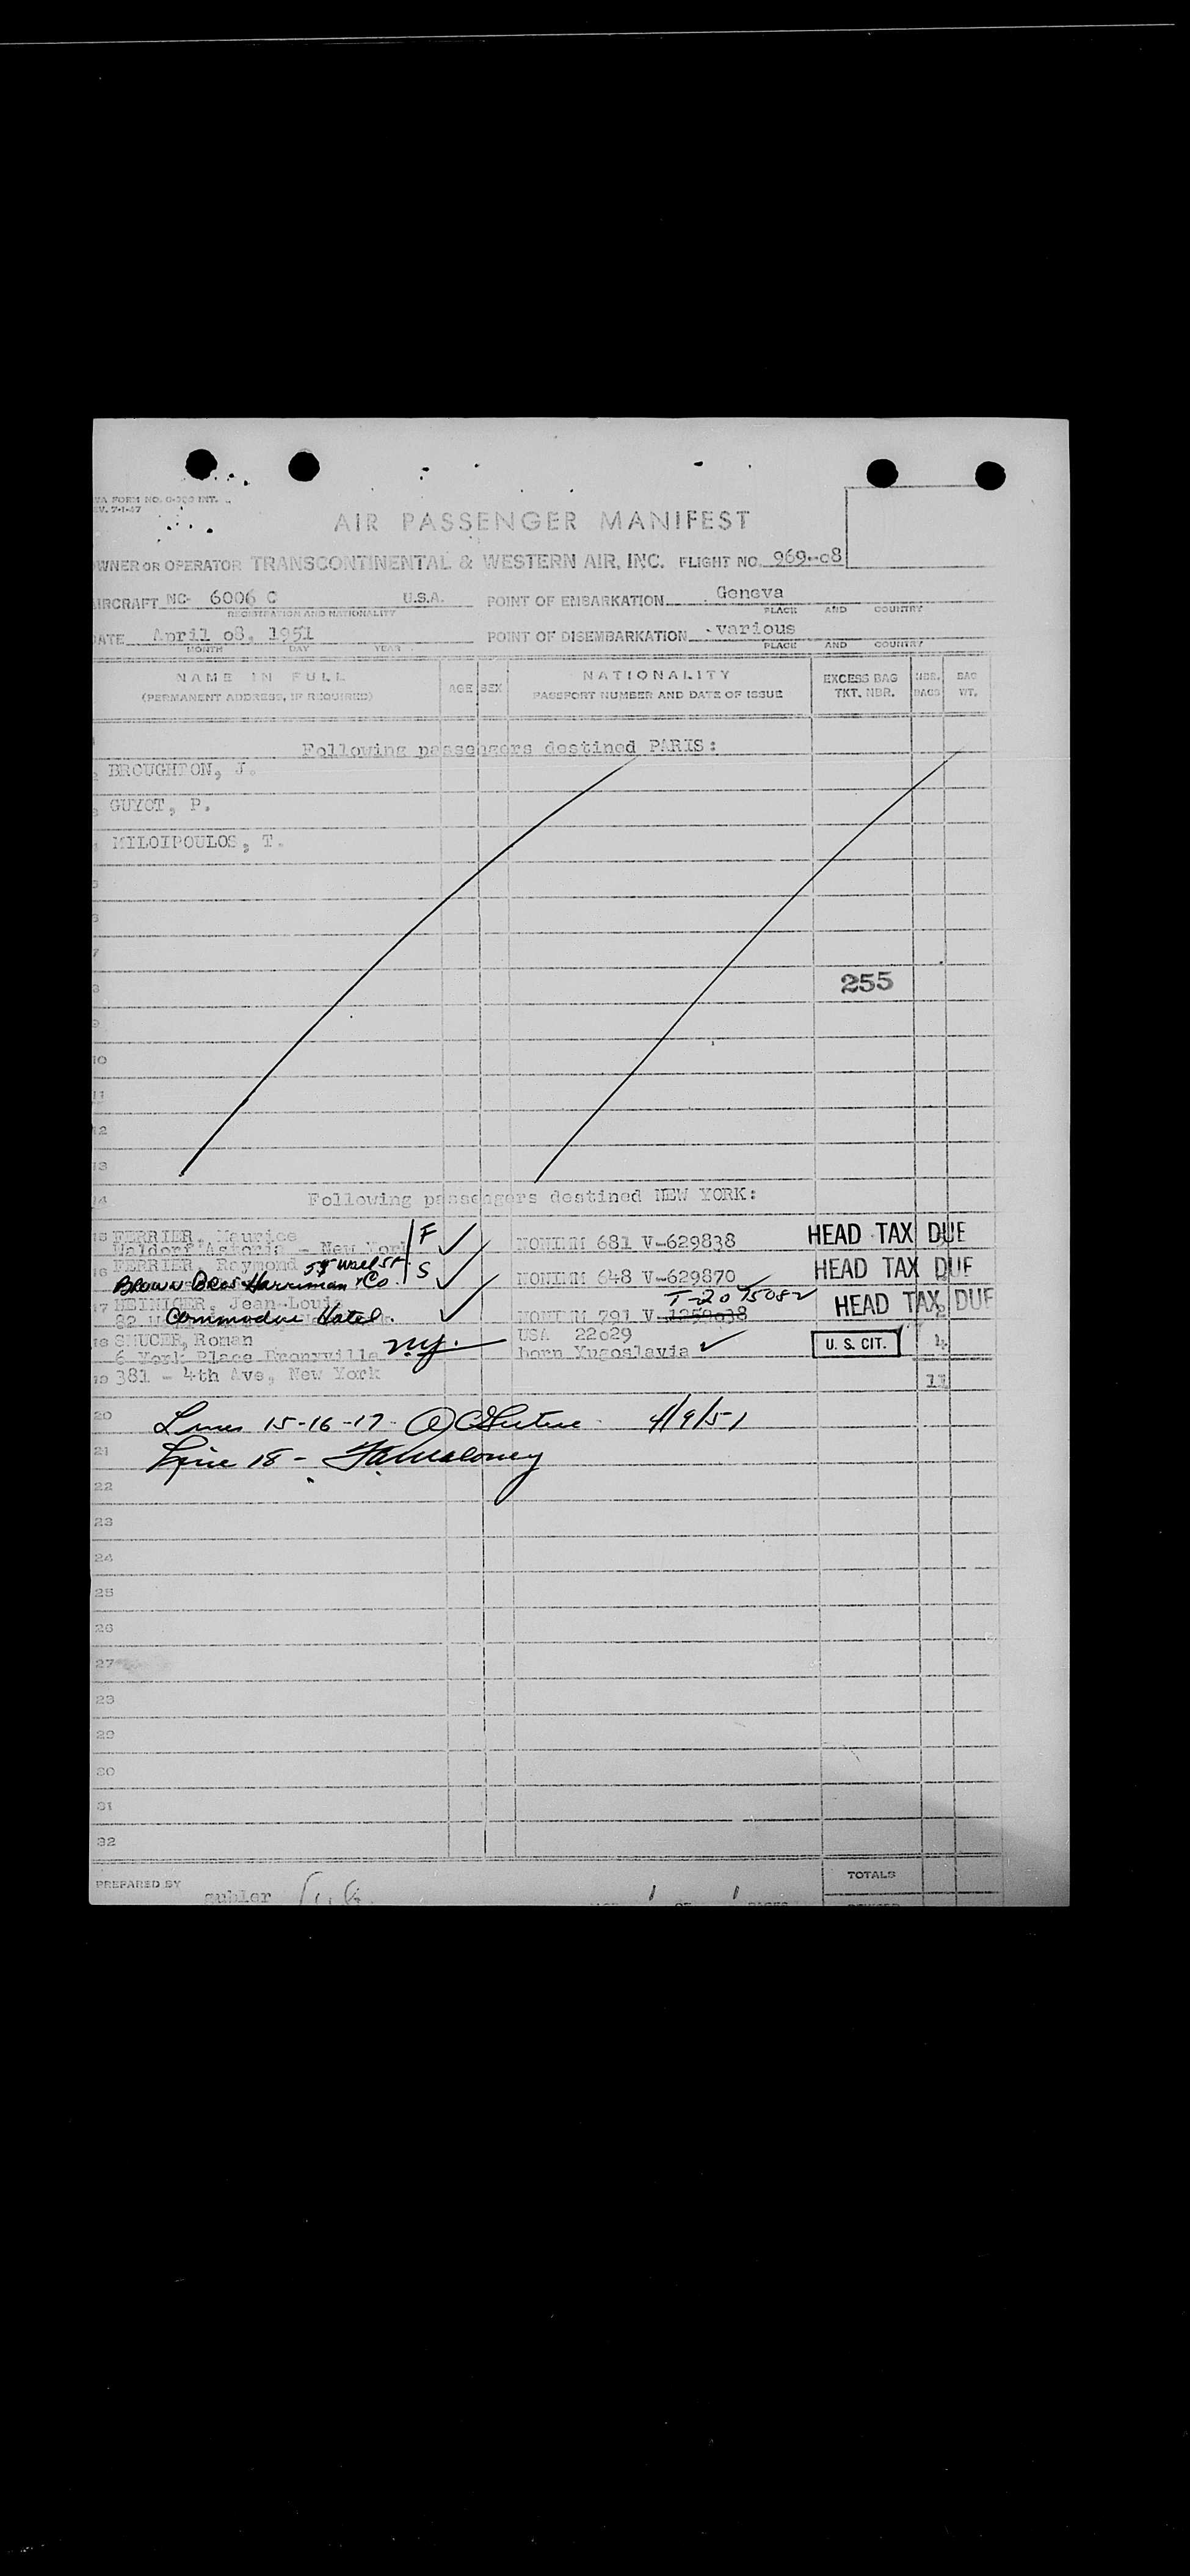 FORM NO. INT.
7-1-47
AIR PASSENGER MANIFEST
WNER OR OPERATOR TRANSCONTINENTAL & WESTERN AIR, INC. FLIGHT NO. 969-08
IRCRAFT NC- 6006 C U.S.A. POINT OF EMBARKATION Geneva
REGISTRATION AND NATIONALITY PLACE AND COUNTRY
ATE April 08, 1951 POINT OF DISEMBARKATION various
MONTH DAY YEAR PLACE AND COUNTRY
NAME IN FULL (PERMANENT ADDRESS, IF REQUIRED) AGE SEX NATIONALITY PASSPORT NUMBER AND DATE OF ISSUE EXCESS BAG TKT. NBR. NBR. BAGS BAG WT.
Following passengers destined PARIS:
BROUGHTON, J.
GUYOT, P.
MILOIPOULOS, T.
7
255
10
11
12
13
14 Following passengers destined NEW YORK:
15 FERRIER, Maurice F
Waldorf Astoria - New York NONIMM 681 V-629838 HEAD TAX DUE
16 FERRIER, Raymond 59 Wall St S
Brown Bros Harriman & Co NONIMM 648 V-629870 HEAD TAX DUE
17 HEINIGER, Jean-Louis T-2075082 HEAD TAX DUE
82 Commodore Hotel. NONIMM 791 V-1259638
18 SMUCER, Roman USA 22029 U. S. CIT.
6 York Place Bronyville n.y. born Yugoslavia
19 381 - 4th Ave, New York 11
20 Lines 15-16-17- 4/9/51
21 Line 18 - Maloney
22
23
24
25
26
27
28
29
30
31
32
PREPARED BY TOTALS
gubler 1 OF 1 PAGES